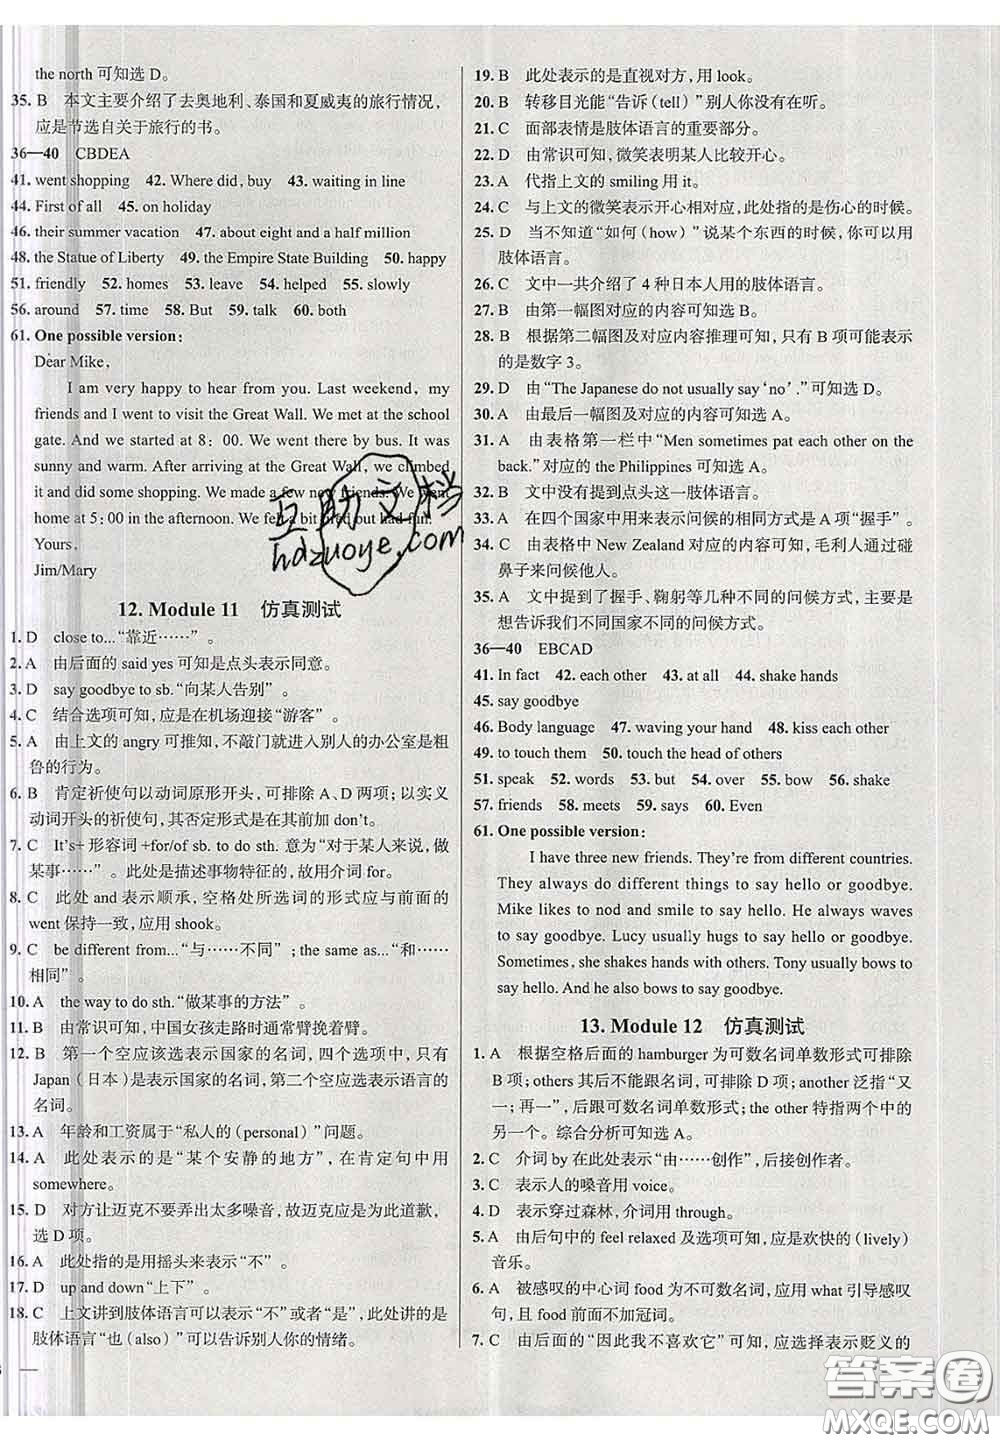 the north 可知选 D。
35. B 本文主要介绍了去奥地利、泰国和夏威夷的旅行情况，
应是节选自关于旅行的书。
36—40 CBDEA
41. went shopping 42. Where did, buy 43. waiting in line
44. First of all 45. on holiday
46. their summer vacation 47. about eight and a half million
48. the Statue of Liberty 49. the Empire State Building 50. happy
51. friendly 52. homes 53. leave 54. helped 55. slowly
56. around 57. time 58. But 59. talk 60. both
61. One possible version:
Dear Mike,
I am very happy to hear from you. Last weekend, my
friends and I went to visit the Great Wall. We met at the school
gate. And we started at 8：00. We went there by bus. It was
sunny and warm. After arriving at the Great Wall, we climbed
it and did some shopping. We made a few new friends. We went
home at 5：00 in the afternoon. We felt a bit tired but had fun.
Yours,
Jim/Mary
12. Module 11 仿真测试
1. D close to...“靠近……”。
2. A 由后面的 said yes 可知是点头表示同意。
3. D say goodbye to sb.“向某人告别”。
4. C 结合选项可知，应是在机场迎接“游客”。
5. A 由上文的 angry 可推知，不敲门就进入别人的办公室是粗
鲁的行为。
6. B 肯定祈使句以动词原形开头，可排除 A、D 两项；以实义
动词开头的祈使句，其否定形式是在其前加 don't。
7. C It's+形容词+for/of sb. to do sth. 意为“对于某人来说，做
某事……”。此处是描述事物特征的，故用介词 for。
8. C 此处 and 表示顺承，空格处所选词的形式应与前面的
went 保持一致，应用 shook。
9. C be different from...“与……不同”；the same as...“和……
相同”。
10. A the way to do sth.“做某事的方法”。
11. B 由常识可知，中国女孩走路时通常臂挽着臂。
12. B 第一个空应该选表示国家的名词，四个选项中，只有
Japan（日本）是表示国家的名词，第二个空应选表示语言的
名词。
13. A 年龄和工资属于“私人的（personal）”问题。
14. A 此处表示的是“某个安静的地方”，在肯定句中用
somewhere。
15. D 对方让迈克不要弄出太多噪音，故迈克应是为此道歉，
选 D 项。
16. A 此处指的是用摇头来表示“不”。
17. D up and down“上下”。
18. C 上文讲到肢体语言可以表示“不”或者“是”，此处讲的是
肢体语言“也（also）”可以告诉别人你的情绪。
19. B 此处表示的是直视对方，用 look。
20. B 转移目光能“告诉（tell）”别人你没有在听。
21. C 面部表情是肢体语言的重要部分。
22. D 由常识可知，微笑表明某人比较开心。
23. A 代指上文的 smiling 用 it。
24. C 与上文的微笑表示开心相对应，此处指的是伤心的时候。
25. D 当不知道“如何（how）”说某个东西的时候，你可以用
肢体语言。
26. C 文中一共介绍了 4 种日本人用的肢体语言。
27. B 由第一幅图对应的内容可知选 B。
28. B 根据第二幅图及对应内容推理可知，只有 B 项可能表示
的是数字 3。
29. D 由“The Japanese do not usually say‘no’.”可知选 D。
30. A 由最后一幅图及对应的内容可知选 A。
31. A 由表格第一栏中“Men sometimes pat each other on the
back.”对应的 the Philippines 可知选 A。
32. B 文中没有提到点头这一肢体语言。
33. A 在四个国家中用来表示问候的相同方式是 A 项“握手”。
34. C 由表格中 New Zealand 对应的内容可知，毛利人通过碰
鼻子来问候他人。
35. A 文中提到了握手、鞠躬等几种不同的问候方式，主要是
想告诉我们不同国家不同的问候方式。
36—40 EBCAD
41. In fact 42. each other 43. at all 44. shake hands
45. say goodbye
46. Body language 47. waving your hand 48. kiss each other
49. to touch them 50. touch the head of others
51. speak 52. words 53. but 54. over 55. bow 56. shake
57. friends 58. meets 59. says 60. Even
61. One possible version:
I have three new friends. They're from different countries.
They always do different things to say hello or goodbye.
Mike likes to nod and smile to say hello. He always waves
to say goodbye. Lucy usually hugs to say hello or goodbye.
Sometimes, she shakes hands with others. Tony usually bows to
say hello. And he also bows to say goodbye.
13. Module 12 仿真测试
1. A 根据空格后面的 hamburger 为可数名词单数形式可排除
B 项；others 其后不能跟名词，可排除 D 项；another 泛指“又
一；再一”，后跟可数名词单数形式；the other 特指两个中的
另一个。综合分析可知选 A。
2. C 介词 by 在此处表示“由……创作”，后接创作者。
3. C 表示人的嗓音用 voice。
4. D 表示穿过森林，介词用 through。
5. A 由后句中的 feel relaxed 及选项可知，应是欢快的（lively）
音乐。
6. A 被感叹的中心词 food 为不可数名词，应用 what 引导感叹
句，且 food 前面不加冠词。
7. C 由后面的“因此我不喜欢它”可知，应选择表示贬义的
互助文档
hdzuoye.com
答案圈
MXQE.COM